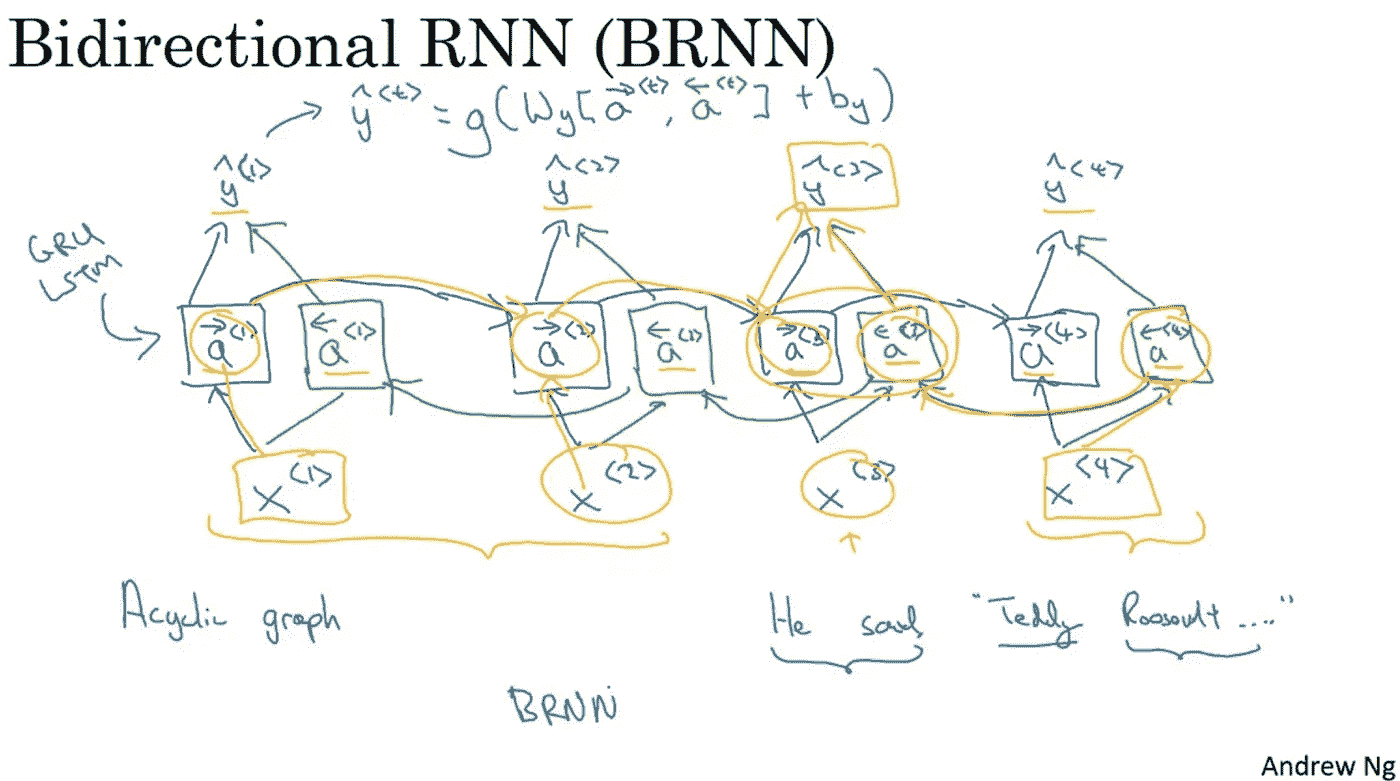 Bidirectional RNN (BRNN)
ŷ<t> = g(Wy[a→<t>, a←<t>] + by)
ŷ<1> ŷ<2> ŷ<3> ŷ<4>
GRU
LSTM
a→<1> a←<1> a→<2> a←<2> a→<3> a←<3> a→<4> a←<4>
x<1> x<2> x<3> x<4>
Acyclic graph He said, "Teddy Roosevelt ...."
BRNN
Andrew Ng